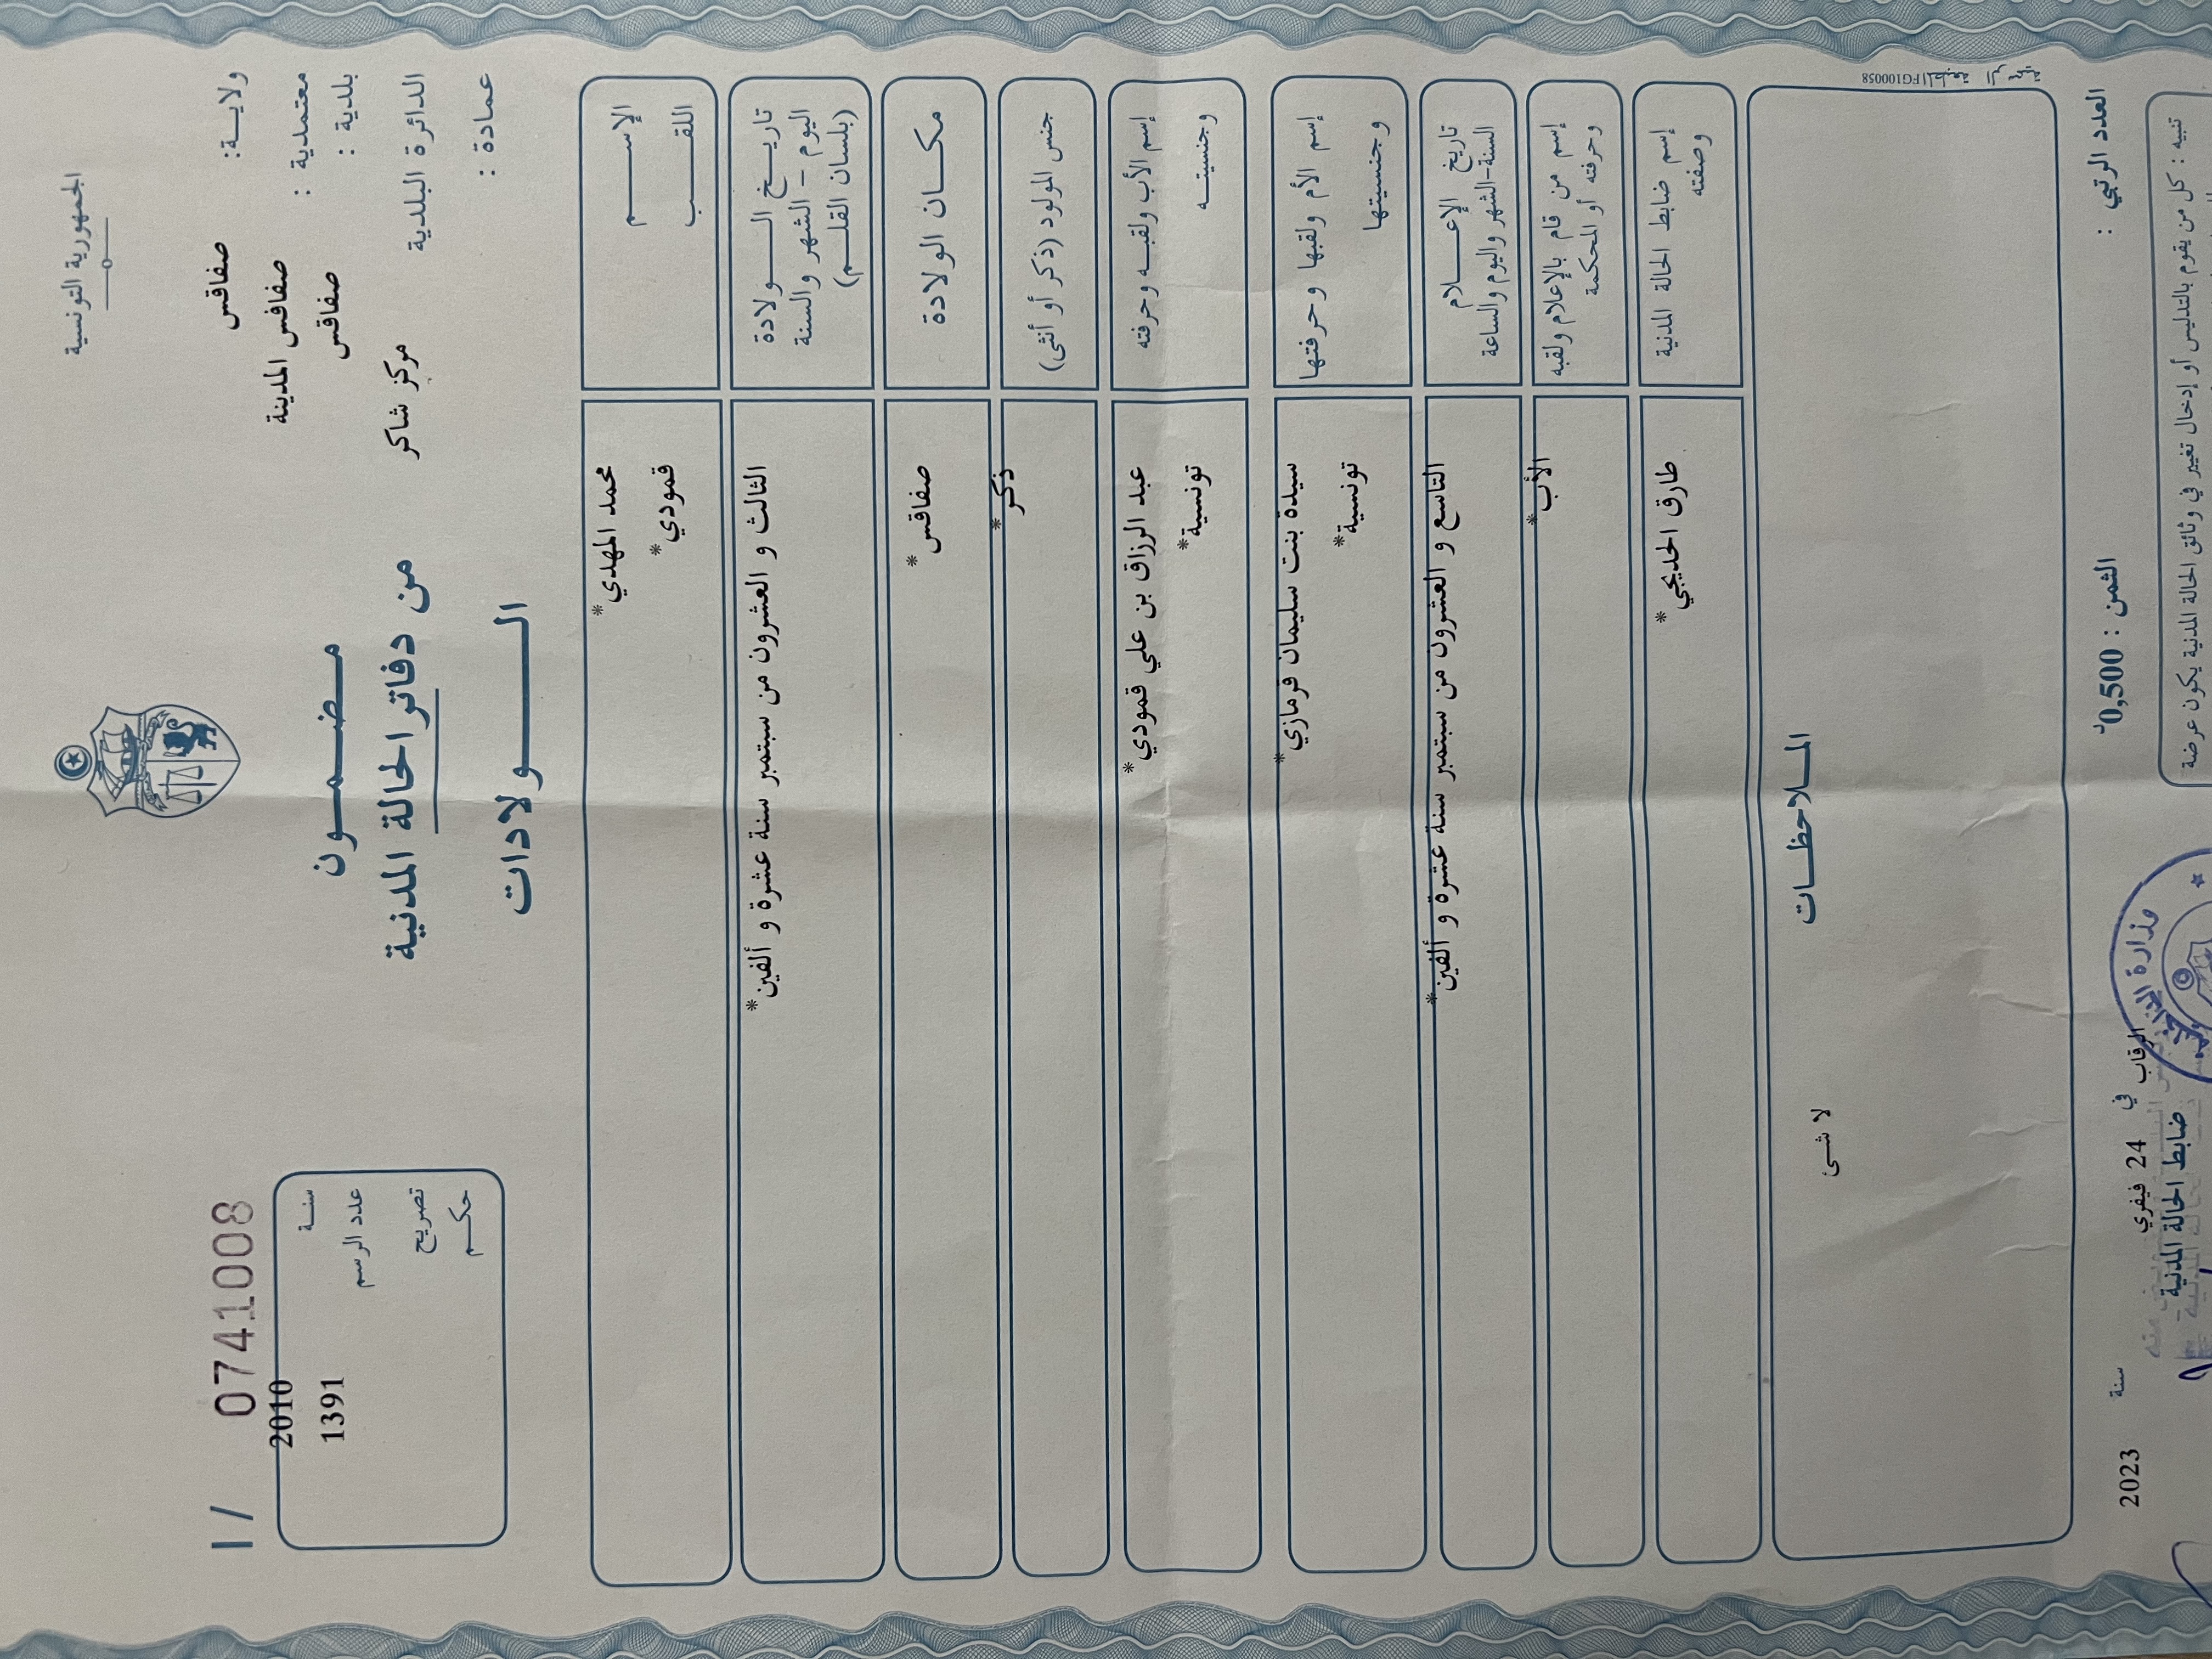 الجمهورية التونسية
ولايـــة: صفاقس
معتمدية : صفاقس المدينة
بلدية : صفاقس
الدائرة البلدية مركز شاكر
عمادة :
I / 0741008
سنـة 2010
عدد الرسم 1391
تصريح
حكـم
مضمـــون
من دفاتر الحالة المدنية
الـــــولادات
الإســـــم محمد المهدي*
اللقـــــب قمودي*
تاريــخ الـــــولادة
اليوم - الشهر والسنة
(بلسان القلـــم)
الثالث و العشرون من سبتمبر سنة عشرة و ألفين*
مكـــان الولادة صفاقس*
جنس المولود (ذكر أو أنثى) ذكر*
إسم الأب ولقبـه وحرفته عبد الرزاق بن علي قمودي*
وجنسيتـــه تونسية*
إسم الأم ولقبها وحرفتها سيدة بنت سليمان فرمازي*
وجنسيتها تونسية*
تاريخ الإعـــلام
السنة-الشهر واليوم والساعة
التاسع و العشرون من سبتمبر سنة عشرة و ألفين*
إسم من قام بالإعلام ولقبه
وحرفته أو المحكمة
الأب*
إسم ضابط الحالة المدنية
وصفته
طارق الحديجي*
الملاحظــات
لا شئ
المطبعة الرسمية FG100058
العدد الرتبي :
الثمن : 0,500د
الرقاب في 24 فيفري سنة 2023
ضابط الحالة المدنية
تنبيه : كل من يقوم بالتدليس أو إدخال تغيير في وثائق الحالة المدنية يكون عرضة